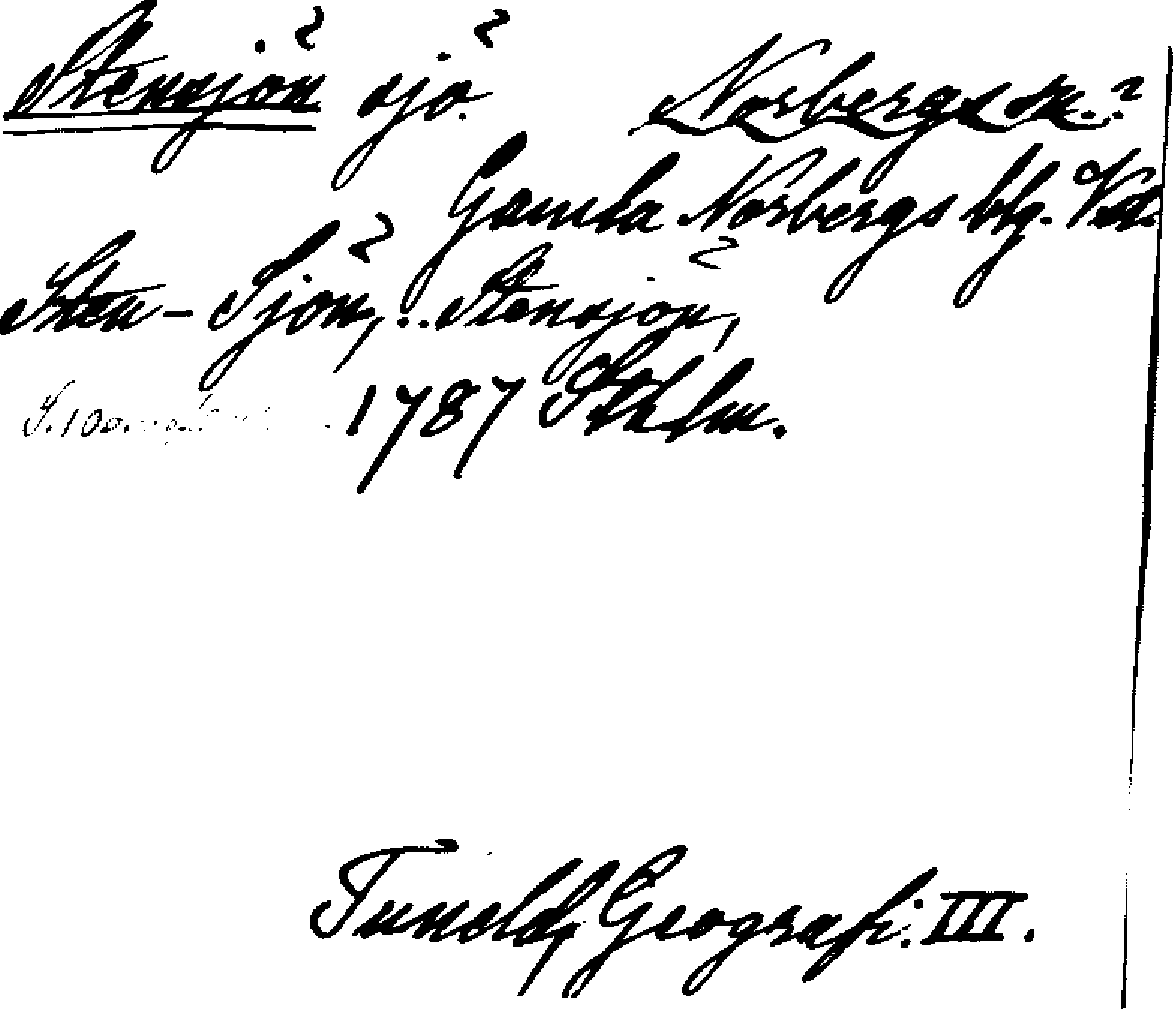 Stensjön sjö. Norbergs sn.?
Gamla Norbergs blg. Vstm.
Sten-Sjön, .. Stensjön,
S. 100 1787 Sthlm.
Tuneld, Geografi. III.